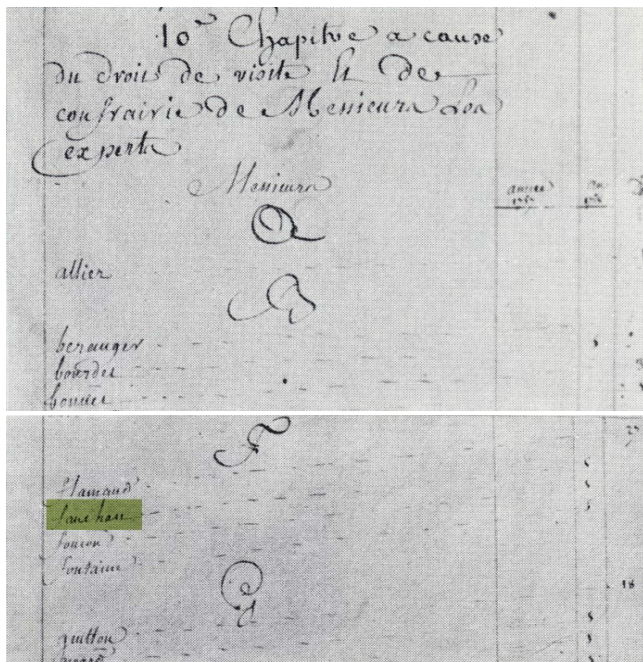 10.e Chapitre a cause
du droit de visite Et de
confrairie de Messieurs Les
experts
Messieurs
année
A
allier
B
beranger
bourdet
bonnet
F
27
flamand
fauchau
foucou
fontaine
18
G
guitton